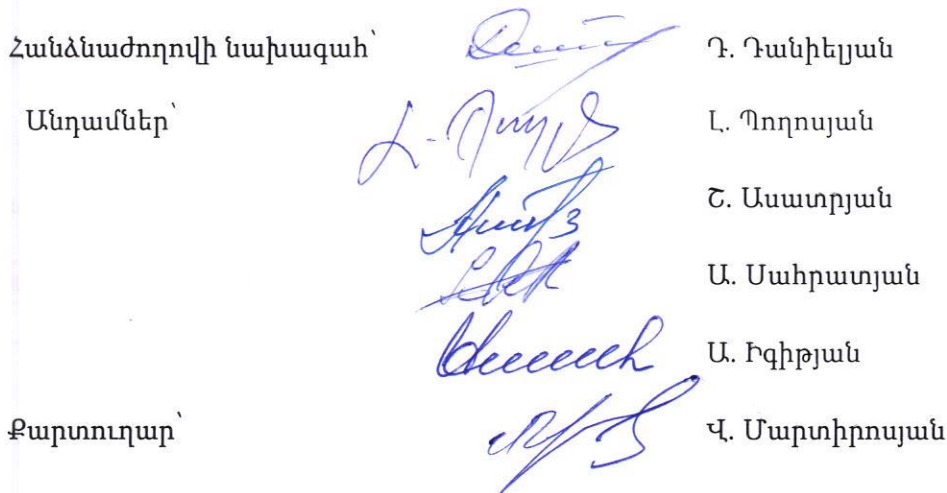 Հանձնաժողովի նախագահ՝ Դ. Դանիելյան
Անդամներ՝ Լ. Պողոսյան
Շ. Ասատրյան
Ա. Սահրատյան
Ա. Իգիթյան
Քարտուղար՝ Վ. Մարտիրոսյան